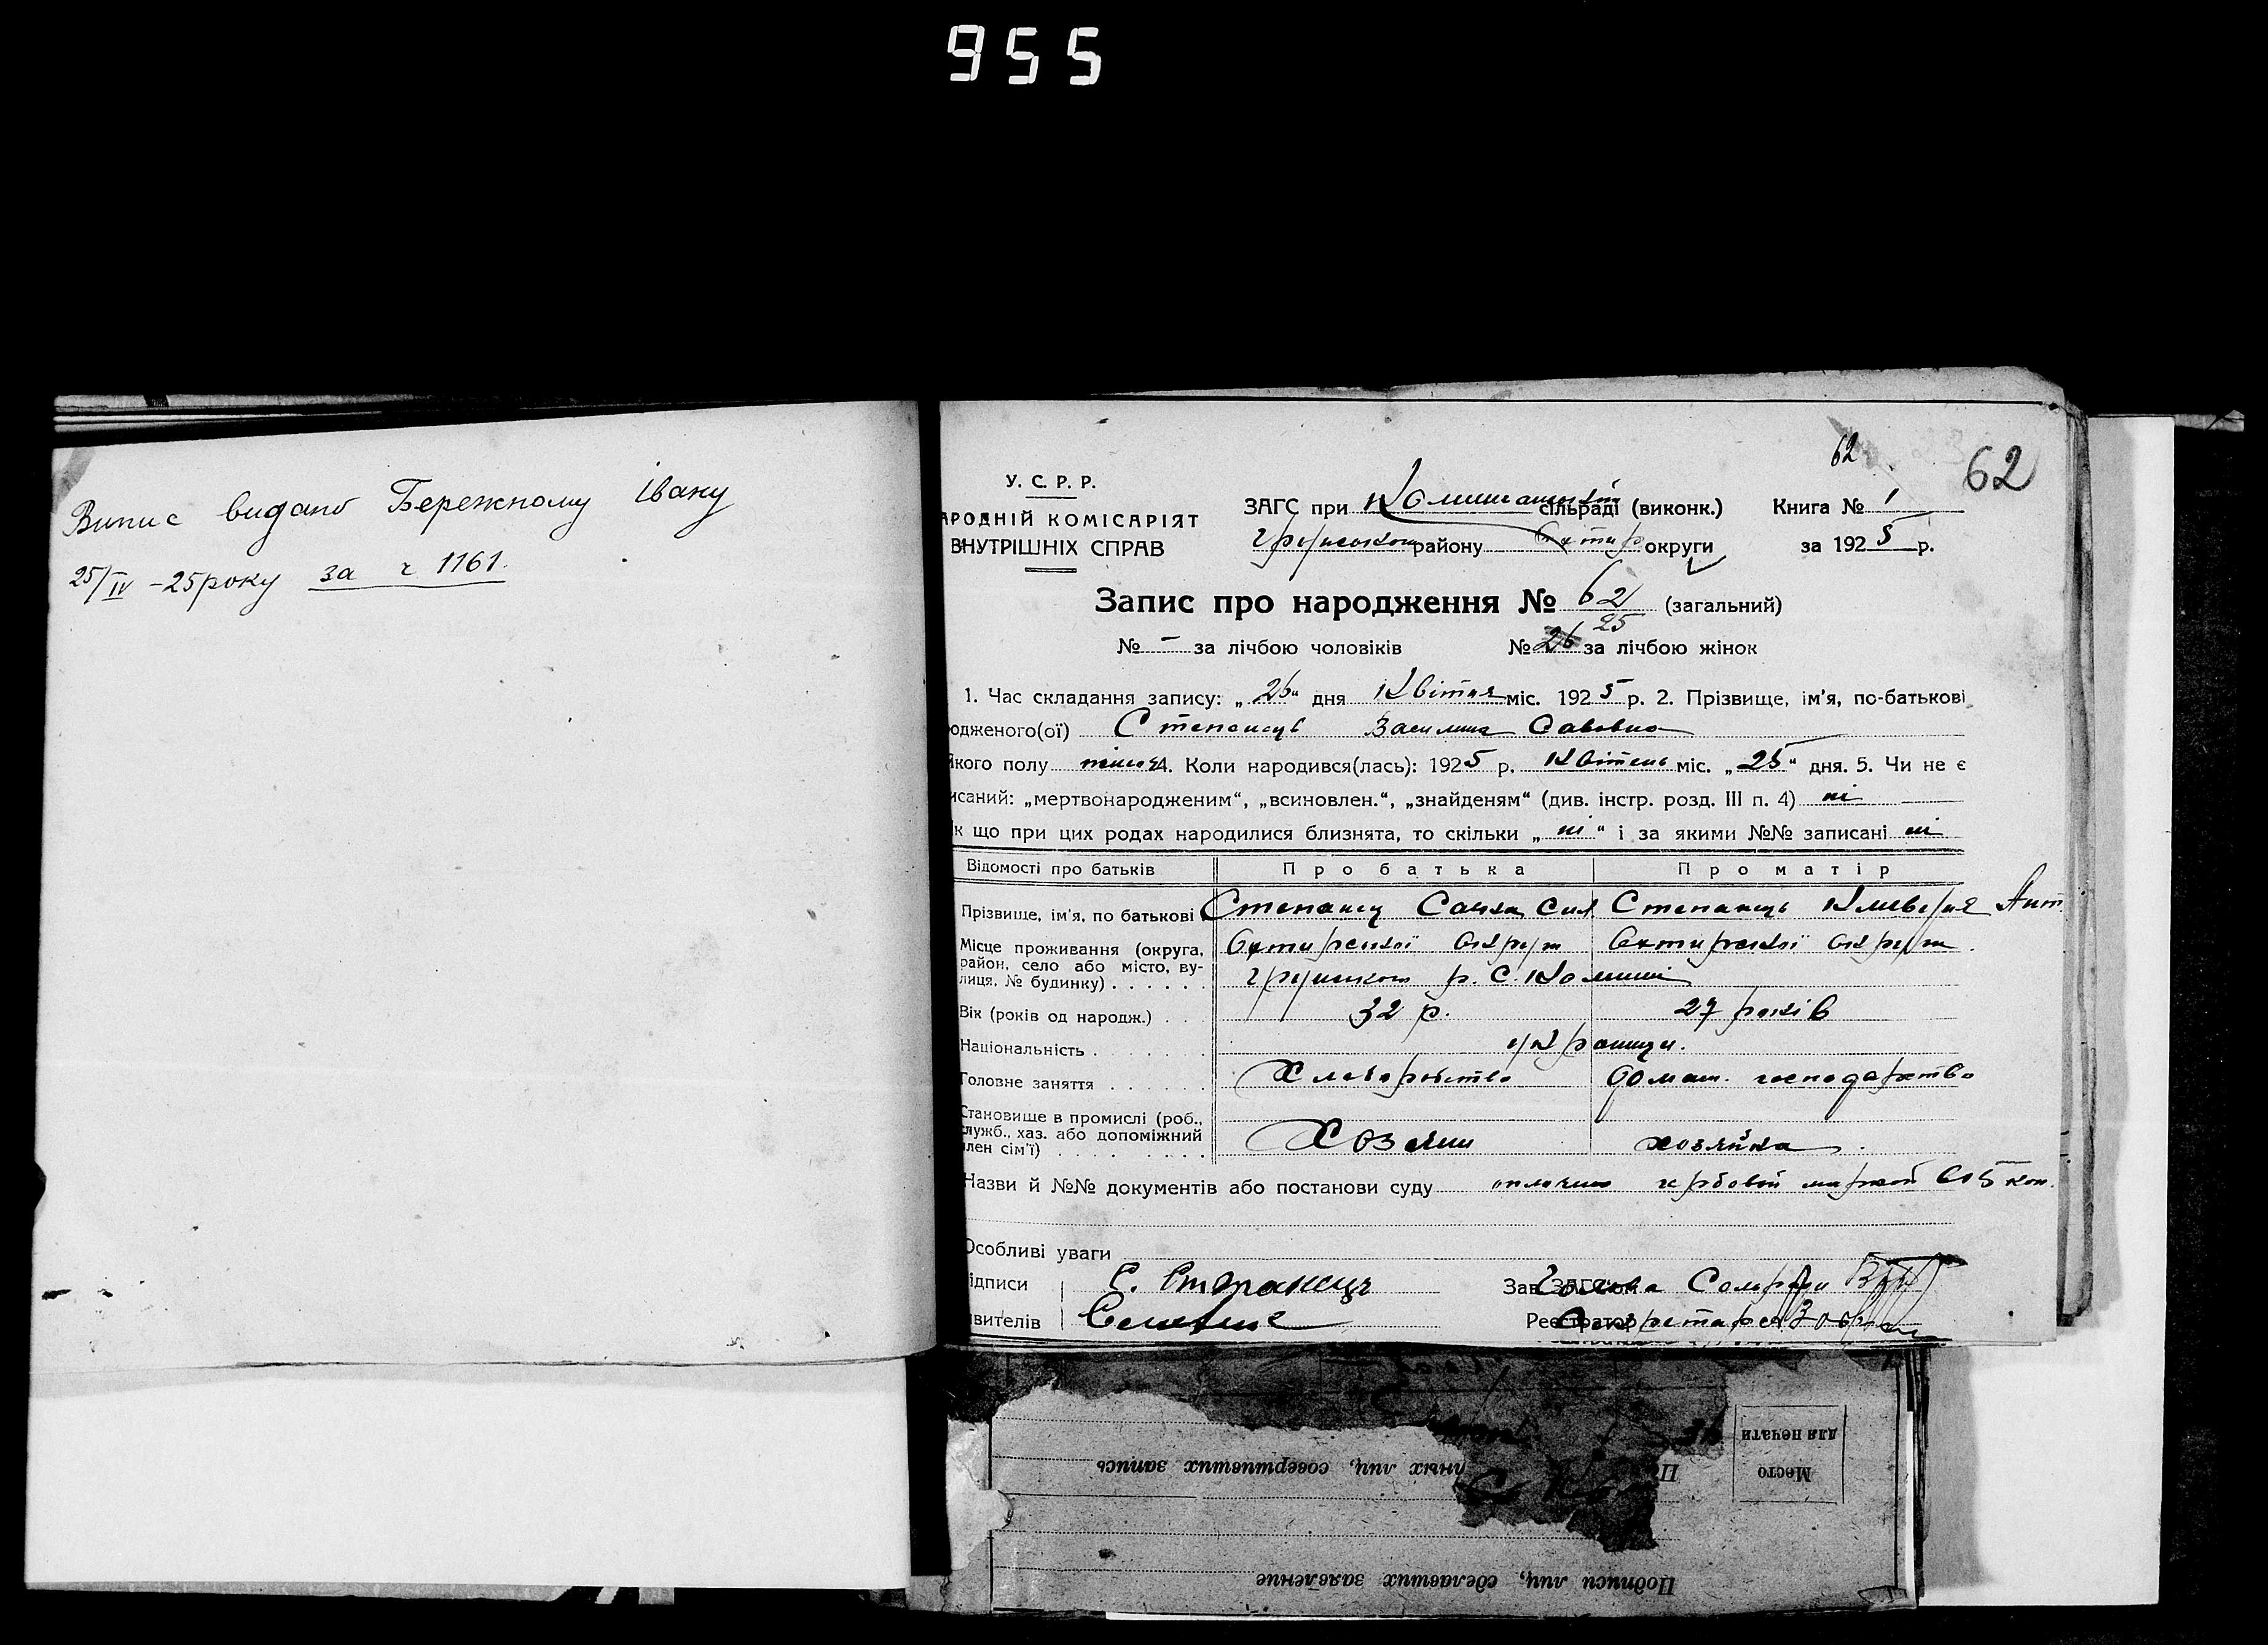 955
Випис видано Бережному Івану
25/IV -25 року за ч 1161.
62
62
У. С. Р. Р.
АРОДНІЙ КОМІСАРІЯТ
ВНУТРІШНІХ СПРАВ
ЗАГС при Комишанській сільраді (виконк.) Книга № 1
району Охтир округи за 1925 р.
Запис про народження № 62 (загальний)
25
№ - за лічбою чоловіків № 26 за лічбою жінок
1. Час складання запису: „26“ дня Квітня міс. 1925 р. 2. Прізвище, ім'я, по-батькові
одженого(ої) Степанець Василина Савовна
якого полу жіноч 4. Коли народився(лась): 1925 р. Квітень міс. „25“ дня. 5. Чи не є
исаний: „мертвонародженим“, „всиновлен.“, „знайденям“ (див. інстр. розд. III п. 4) ні
к що при цих родах народилися близнята, то скільки „ні“ і за якими №№ записані ні
Відомості про батьків Про батька Про матір
Прізвище, ім'я, по батькові Степанец Савва Степанець
Місце проживання (округа, Охтирської округи Охтирської округи
район, село або місто, ву-
лиця, № будинку) . . . . . . р. С. Комиші
Вік (років од народж.) . . 32 р. 27 років
Національність . . . . . . україн.
Головне заняття . . . . . Хлеборобство домаш. господарство
Становище в промислі (роб.,
служб., хаз. або допоміжний
лен сім'ї) . . . . . . . . Хозяин хозяйка
Назви й №№ документів або постанови суду оплачено гербовой маркой 15 коп.
Особливі уваги
ідписи С. Степанець Зав. ЗАГС'ом Голова Сельради
явителів Реєстратор Секретарь
Место
для печати
ных лиц, совершивших запись
Подписи лиц, сделавших заявление